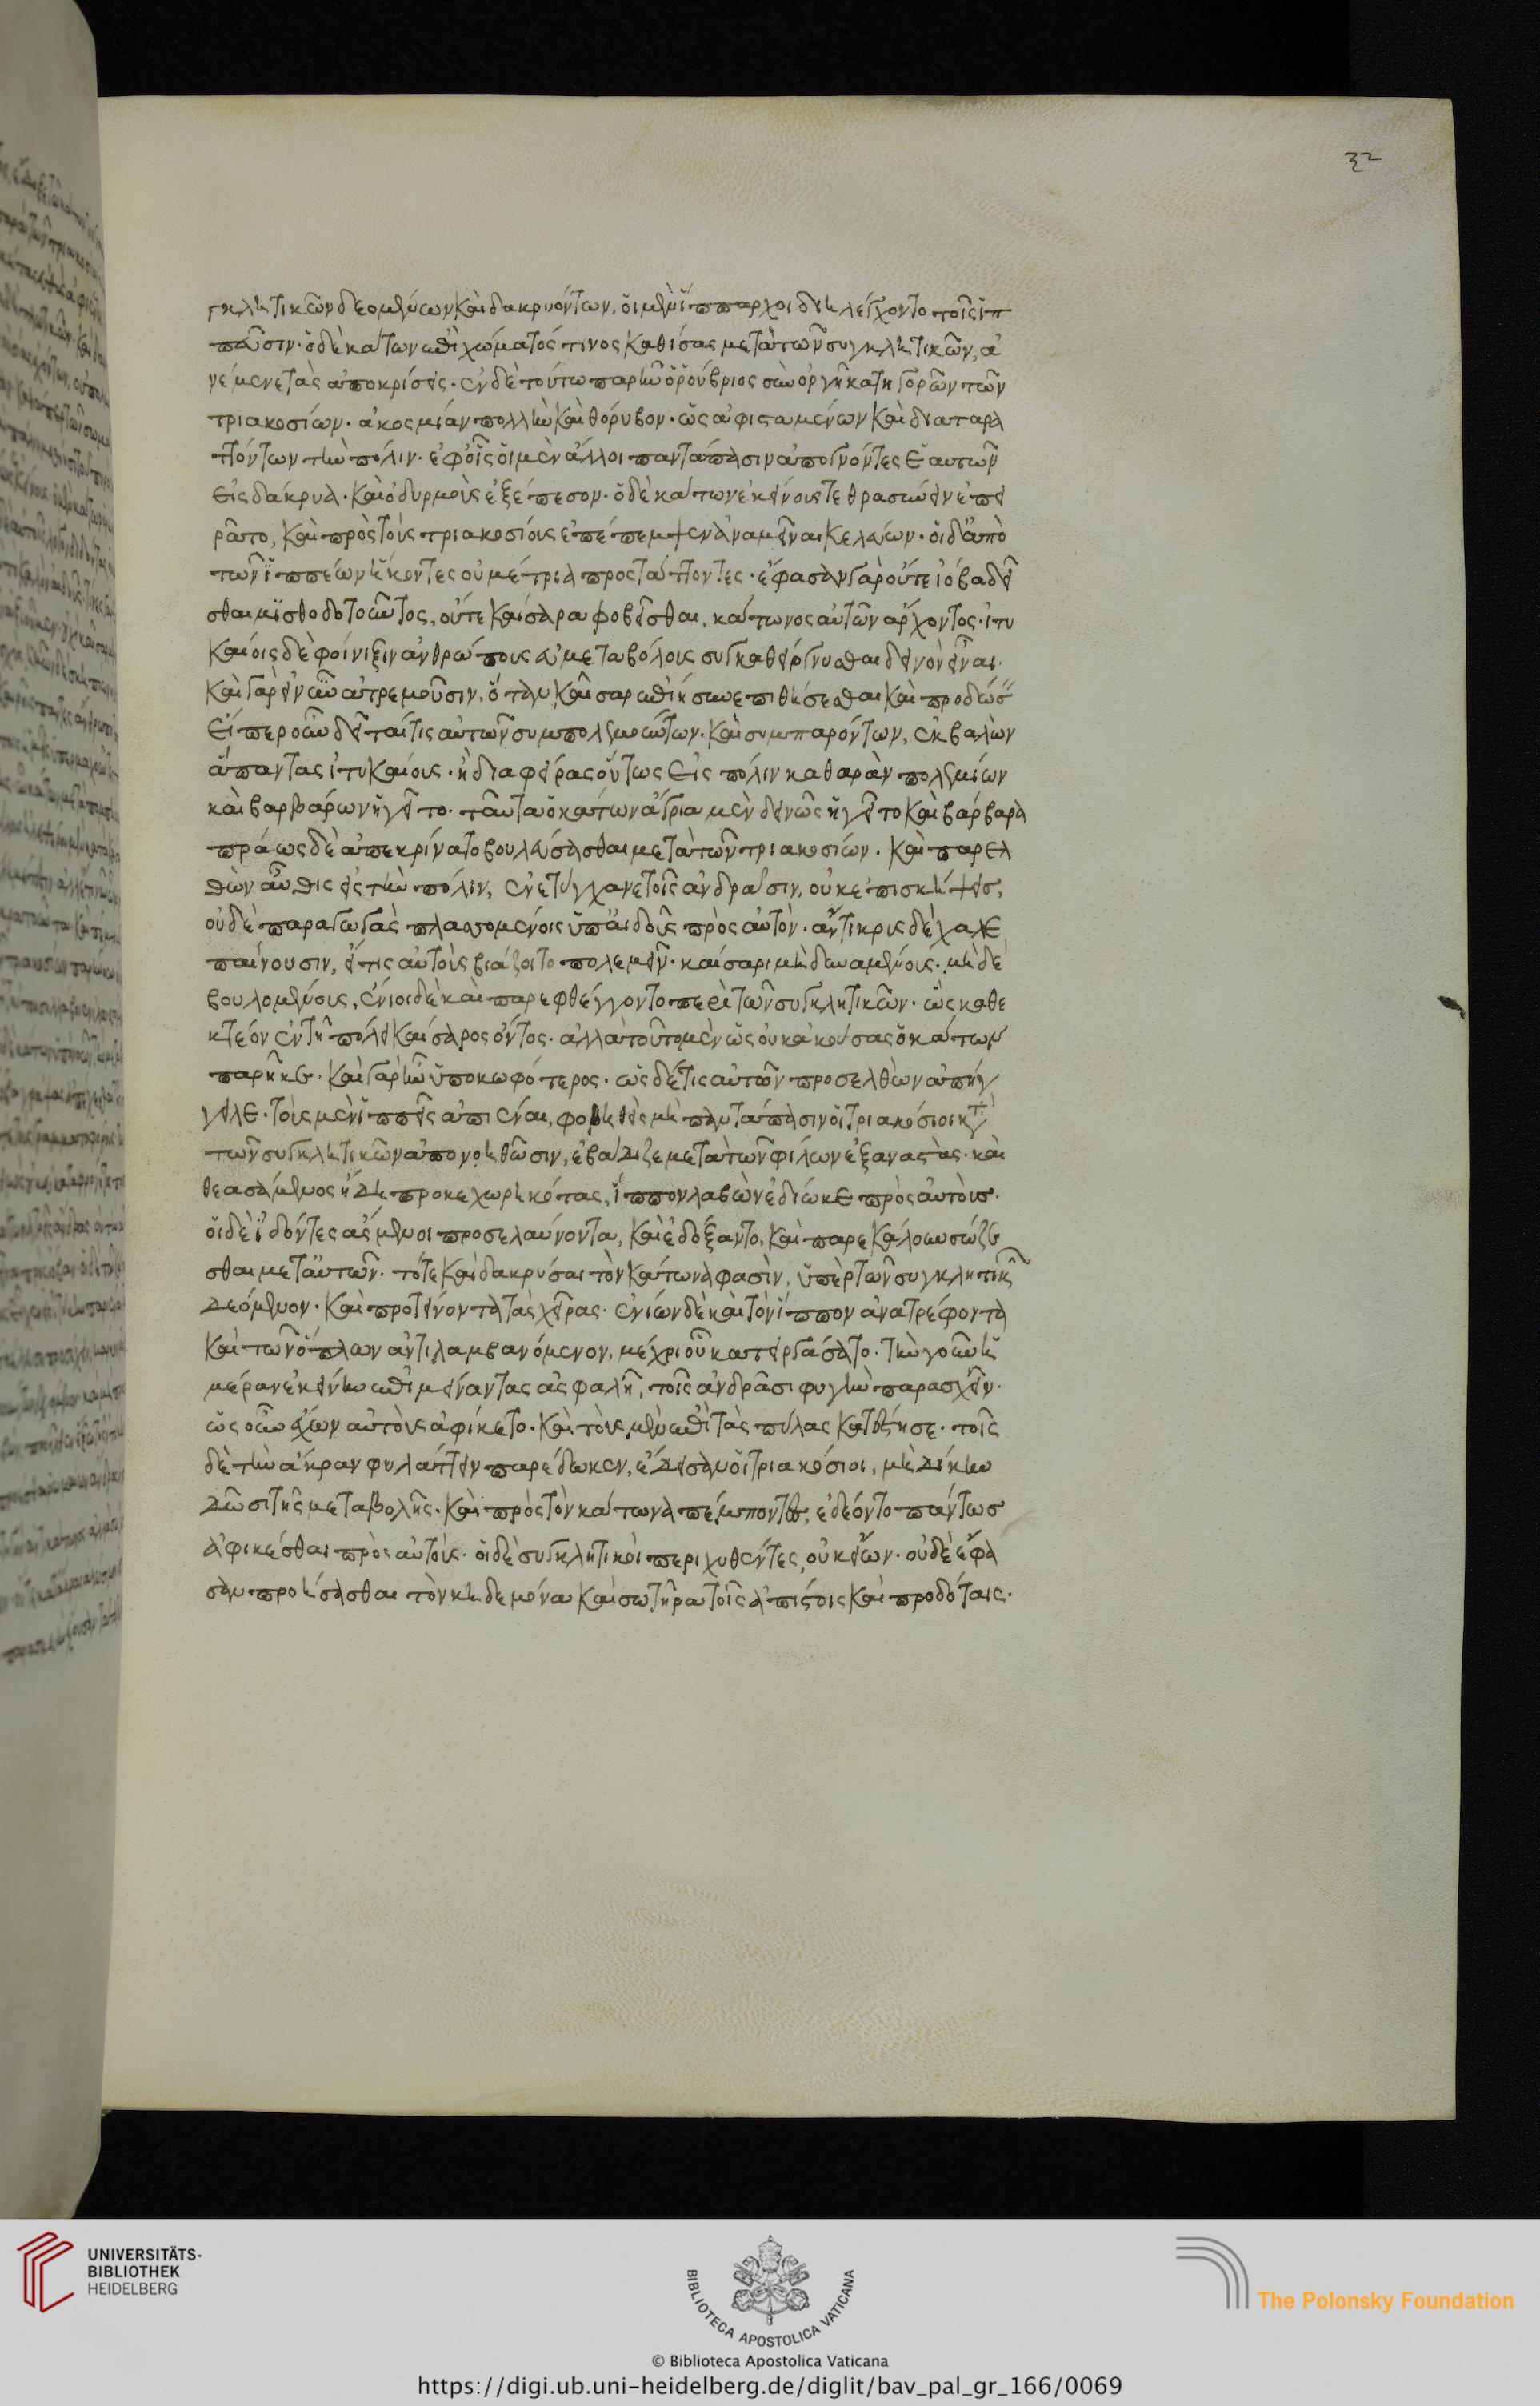 32
γκλητικῶν δεομένων καὶ δακρυόντων, οἱ μὲν ἵππαρχοι διελέγοντο τοῖς ἱπ
πεῦσιν· ὁ δὲ κάτων ἐπὶ χώματός τινος καθίσας μετὰ τῶν συγκλητικῶν, ἀ
νέμενε τὰς ἀποκρίσεις· ἐν δὲ τούτω παρῆν ὁ ῥούβριος σὺν ὀργῆ κατηγορῶν τῶν
τριακοσίων· ἀκοσμίαν πολλὴν καὶ θόρυβον· ὡς ἀφισταμένων καὶ διαταρα
ττόντων τὴν πόλιν· ἐφ' οἷς οἱ μὲν ἄλλοι παντάπασιν ἀπογνόντες ἑαυτῶν
εἰς δάκρυα· καὶ ὀδυρμοὺς ἐξέπεσον· ὁ δὲ κάτων ἐκείνους τε θρασύνειν ἐπει
ρᾶτο, καὶ πρὸς τοὺς τριακοσίους ἐπέπεμψεν ἀναμεῖναι κελεύων· οἱ δ' ἀπὸ
τῶν ἱππέων ἧκοντες οὐ μέτρια προστάττοντες· ἔφασαν γὰρ οὔτε ἰόβα δεῖ
σθαι μισθοδοτοῦντος, οὔτε καίσαρα φοβεῖσθαι, κάτωνος αὐτῶν ἄρχοντος· ἰτυ
καίοις δὲ φοίνιξιν ἀνθρώποις εὐμεταβόλοις συγκαθείργνυσθαι δεινὸν εἶναι·
καὶ γὰρ εἰ νῦν ἀτρεμοῦσιν, ὅταν καῖσαρ ἐπίη συνεπιθήσεσθαι καὶ προδώσ
εἴπερ οὖν δεῖται τις αὐτῶν συμπολεμούντων· καὶ συμπαρόντων, ἐκβαλὼν
ἅπαντας ἰτυκαίους· ἢ διαφείρας οὕτως εἰς πόλιν καθαρὰν πολεμίων
καὶ βαρβάρων ἡγεῖτο· ταῦτα ὁ κάτων ἄγρια μὲν δεινῶς ἡγεῖτο καὶ βάρβαρα
πράως δὲ ἀπεκρίνατο βουλεύσασθαι μετὰ τῶν τριακοσίων· καὶ παρελ
θὼν αὖθις εἰς τὴν πόλιν, ἐνετύγχανε τοῖς ἀνδράσιν, οὐκέτι σκήψεις,
οὐδὲ παραγωγὰς πλαττομένοις ὑπ' αἰδοῦς πρὸς αὐτόν· ἄντικρις δὲ χαλε
παίνουσιν, εἴ τις αὐτοὺς βιάζοιτο πολεμεῖν· καίσαρι μὴ δυναμένοις· μὴ δὲ
βουλομένοις, ἔνιοι δὲ καὶ παρεφθέγγοντο περὶ τῶν συγκλητικῶν· ὡς καθε
κτέον ἐν τῆ πόλει καίσαρος ὄντος· ἀλλὰ τοῦτο μὲν ὡς οὐκ ἀκούσας ὁ κάτων
παρῆκε· καὶ γὰρ ἦν ὑποκωφότερος· ὡς δέ τις αὐτῶν προσελθὼν ἀπήγ
γειλε· τοὺς μὲν ἱππεῖς ἀπιέναι, φοβηθεὶς μὴ παντάπασιν οἱ τριακόσιοι κτ
τῶν συγκλητικῶν ἀπονοηθῶσιν, ἐβάδιζε μετὰ τῶν φίλων ἐξαναστὰς· καὶ
θεασάμενος ἤδη προκεχωρηκότας, ἵππον λαβὼν ἐδίωκε πρὸς αὐτούς·
οἱ δὲ ἰδόντες ἄσμενοι προσελαύνοντα, καὶ ἐδέξαντο, καὶ παρεκάλουν σώζε
σθαι μετ' αὐτῶν· τότε καὶ δακρύσαι τὸν κάτωνα φασὶν, ὑπὲρ τῶν συγκλητικ
δεόμενον· καὶ προτείνοντα τὰς χεῖρας· ἐνίων δὲ καὶ τὸν ἵππον ἀναστρέφοντα
καὶ τῶν ὅπλων ἀντιλαμβανόμενον, μέχρι οὗ κατειργάσατο· τὴν γοῦν ἡ
μέραν ἐκείνην ἐπιμείναντας ἀσφαλῆ, τοῖς ἀνδράσι φυγὴν παρασχεῖν·
ὡς οὖν ἔχων αὐτοὺς ἀφίκετο· καὶ τοὺς μὲν ἐπὶ τὰς πύλας κατέστησε· τοῖς
δὲ τὴν ἄκραν φυλάττειν παρέδωκεν, ἔδεισαν οἱ τριακόσιοι, μὴ δίκην
δῶσι τῆς μεταβολῆς· καὶ πρὸς τὸν κάτωνα πέμποντες, ἐδέοντο πάντως
ἀφικέσθαι πρὸς αὐτούς· οἱ δὲ συγκλητικοὶ περιχυθέντες, οὐκ εἴων· οὐδὲ ἔφα
σαν προήσασθαι τὸν κηδεμόνα καὶ σωτῆρα τοῖς ἀπίστοις καὶ προδόταις·
UNIVERSITÄTS-
BIBLIOTHEK
HEIDELBERG
BIBLIOTECA APOSTOLICA VATICANA
The Polonsky Foundation
© Biblioteca Apostolica Vaticana
https://digi.ub.uni-heidelberg.de/diglit/bav_pal_gr_166/0069